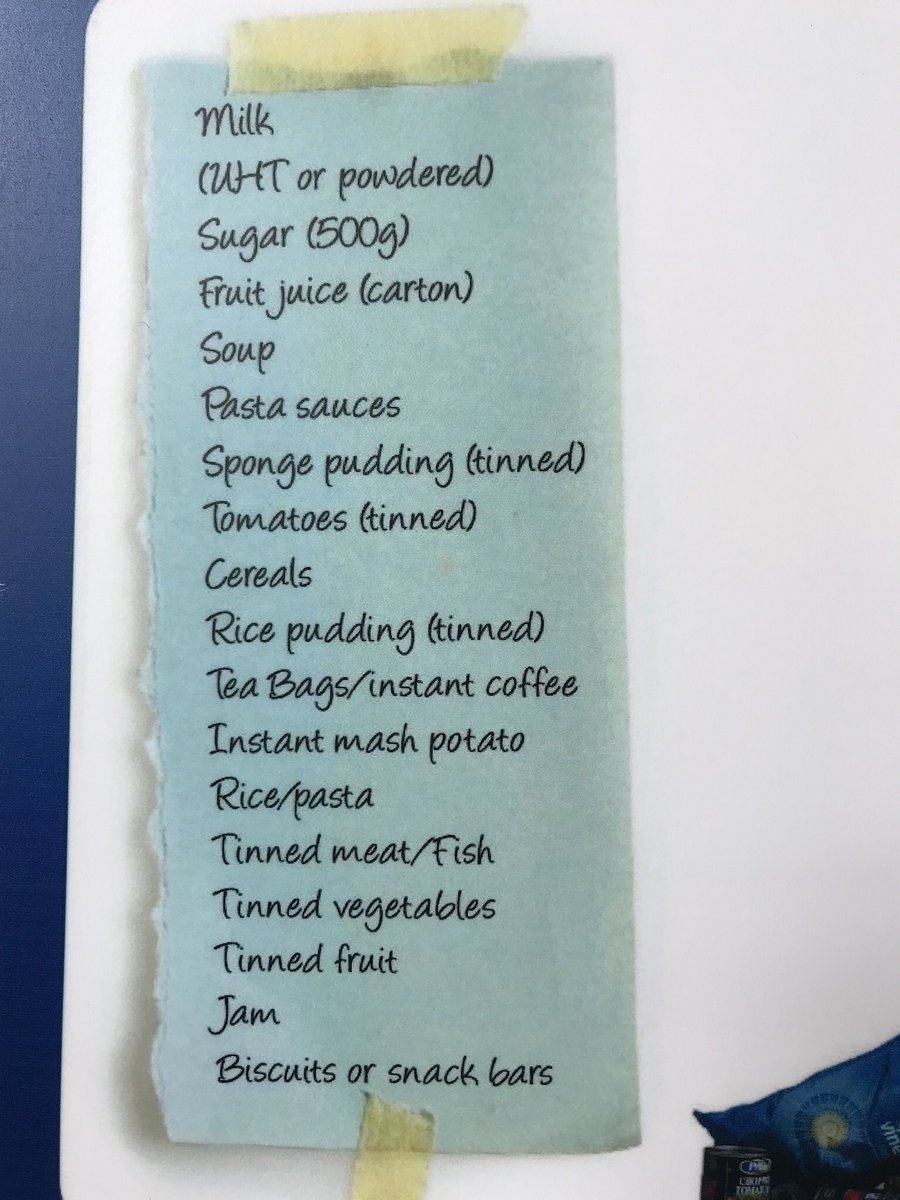 Milk
(UHT or powdered)
Sugar (500g)
Fruit juice (carton)
Soup
Pasta sauces
Sponge pudding (tinned)
Tomatoes (tinned)
Cereals
Rice pudding (tinned)
Tea Bags/instant coffee
Instant mash potato
Rice/pasta
Tinned meat/Fish
Tinned vegetables
Tinned fruit
Jam
Biscuits or snack bars